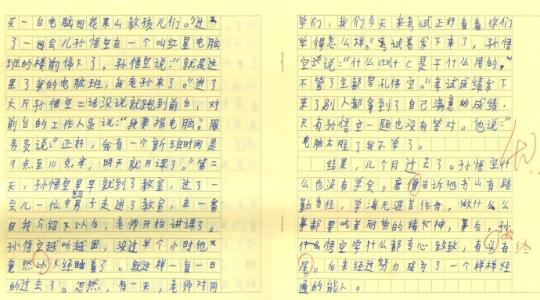 买一台电脑回花果山教孩儿们。"过
了一会儿孙悟空在一个叫红星电脑
班的楼前停下了。孙悟空说:"就是这
里了我的电脑班,我老孙来了。"进了
大厅孙悟空二话没说就跑到前台,对
前台的工作人员说:"我要报电脑。"服
务员说:"正好,我有一个新班时间是
9点至10点半,明天就开课了。"第二
天,孙悟空早早就到了教室,过了一
会儿一位中年男子走进了教室,在一番
自我介绍下以后,老师开始讲课了。
孙悟空越听越困,没过半个小时他
竟然以经睡着了。就这样一直一日
的过去了。忽然,有一天,老师对同
学们,我们今天来考试正好看看你们
学得怎么样。"考试卷发下来了,孙悟
空说:"什么 ctrl c 是干什么用的。"
不管了全都写孔悟空。"考试成绩发下
来了别人都拿到了自己满意的成绩,
只有孙悟空一题也没有答对。他说:"
电脑太难了我不学了。
结果,几个月过去了。孙悟空什
么也没有学会。唐僧告诉他书山有路
勤为径,学海无涯苦作舟,做什么
事都里要有耐劳的精神,事后,孙
什么悟空学什么都专心致致,有
尾。后来经过努力成为了一个样样经
通的能人。